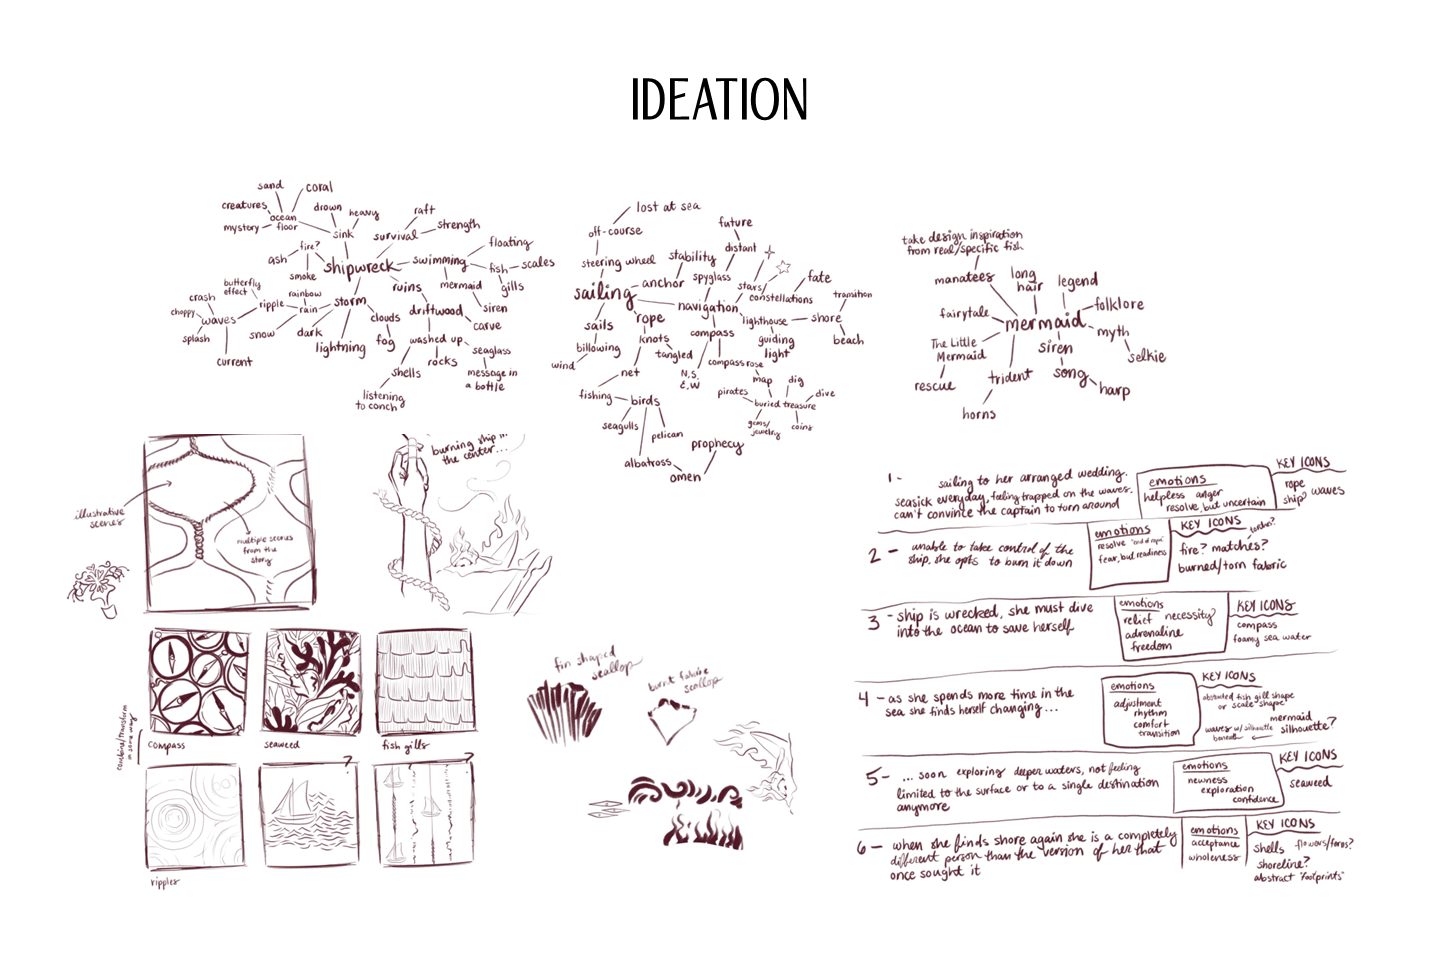 IDEATION
sand
coral
creatures
ocean
floor
mystery
drown
heavy
sink
raft
survival
strength
fire?
ash
smoke
shipwreck
swimming
floating
fish
scales
gills
mermaid
siren
ruins
butterfly
effect
crash
choppy
waves
splash
current
ripple
rainbow
rain
snow
storm
dark
lightning
clouds
fog
driftwood
carve
washed up
seaglass
rocks
message in
a bottle
shells
listening
to conch
lost at sea
off-course
steering wheel
sailing
anchor
stability
future
distant
spyglass
stars
constellations
fate
navigation
transition
lighthouse
shore
beach
guiding
light
rope
sails
billowing
wind
knots
tangled
compass
N,S,
E,W
compass rose
map
net
fishing
birds
seagulls
pelican
albatross
omen
prophecy
pirates
buried treasure
dig
dive
coins
gems/
jewelry
take design inspiration
from real/specific fish
manatees
long
hair
legend
folklore
fairytale
mermaid
myth
selkie
The Little
Mermaid
siren
rescue
trident
song
harp
horns
illustrative
scenes
multiple scenes
from the
story
burning ship in
the center...
compass
seaweed
fish gills
combine/transform
in some way
?
?
ripples
fin shaped
scallop
burnt fabric
scallop
1 - sailing to her arranged wedding.
seasick everyday, feeling trapped on the waves.
can't convince the captain to turn around
emotions
helpless anger
resolve, but uncertain
KEY ICONS
rope
ship? waves
2 - unable to take control of the
ship, she opts to burn it down
emotions
resolve "end of rope"
fear, but readiness
KEY ICONS
torches?
fire? matches?
burned/torn fabric
3 - ship is wrecked, she must dive
into the ocean to save herself
emotions
relief necessity?
adrenaline
freedom
KEY ICONS
compass
foamy sea water
4 - as she spends more time in the
sea she finds herself changing...
emotions
adjustment
rhythm
comfort
transition
KEY ICONS
abstracted fish gill shape
or scale shape
waves w/ silhouette
beneath
mermaid
silhouette?
5 - ... soon exploring deeper waters, not feeling
limited to the surface or to a single destination
anymore
emotions
newness
exploration
confidence
KEY ICONS
seaweed
6 - when she finds shore again she is a completely
different person than the version of her that
once sought it
emotions
acceptance
wholeness
KEY ICONS
shells flowers/ferns?
shoreline?
abstract "footprints"